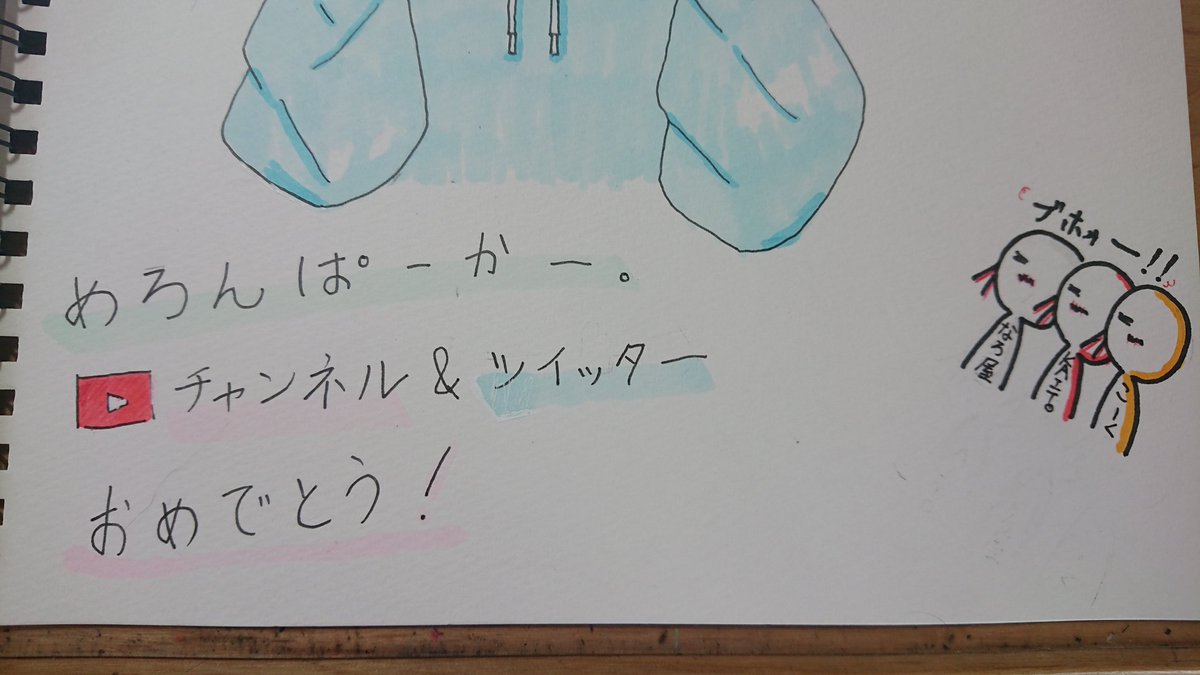 めろんぱーかー。
チャンネル & ツイッター
おめでとう!
ブホォー!!
なろ屋
KAITO
こーく